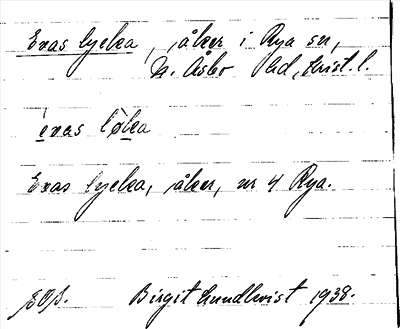 Evas lycka, åker i Rya sn,
N. Åsbo hd, Krist. l.
èvas lø̀ka
Evas lycka, åker, nr 4 Rya.
Birgit Lundkvist 1938.